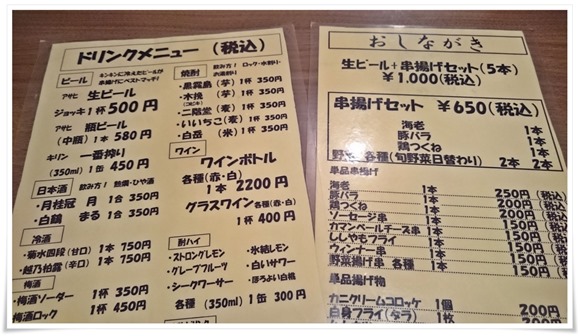 ドリンクメニュー (税込)
ビール キンキンに冷えたビールが
串揚げにベストマッチ!
アサヒ 生ビール
ジョッキ1杯 500円
アサヒ 瓶ビール
(中瓶) 1本 580円
キリン 一番搾り
(350ml) 1缶 450円
日本酒 飲み方! 熱燗・ひや酒
・月桂冠 月 1合 350円
・白鶴 まる 1合 350円
冷酒
・菊水四段(甘口) 1本 750円
・越乃柏露(辛口) 1本 750円
梅酒
梅酒ソーダー 1杯 350円
梅酒ロック 1杯 450円
焼酎 飲み方! ロック・水割り・
お湯割り
・黒霧島 (芋) 1杯 350円
・木挽 (芋) 1杯 350円
(こびき)
・二階堂 (麦) 1杯 350円
・いいちこ(麦) 1杯 350円
・白岳 (米) 1杯 350円
ワイン
ワインボトル
各種(赤・白)
1本 2200円
グラスワイン 各種(赤・白)
1杯 400円
酎ハイ
・ストロングレモン ・氷結レモン
・グレープフルーツ ・白いサワー
・シークワーサー ・ほろよい白桃
各種 (350ml) 1缶 300円
おしながき
生ビール+串揚げセット(5本)
¥1,000(税込)
串揚げセット ¥650(税込)
海老 1本
豚バラ 1本
鶏つくね 1本
野菜 各種(旬野菜日替わり) 2本
単品串揚げ
海老 1本 250円(税込)
豚バラ 1本 200円(税込)
鶏つくね 1本 200円(税込)
ソーセージ串 1本 200円(税込)
カマンベールチーズ串 1本 150円(税込)
ししゃもフライ 1本 150円(税込)
ウィンナー串 1本 150円(税込)
野菜揚げ串 各種 1本 150円(税込)
単品揚げ物
カニクリームコロッケ 1個 200円
白身フライ(タラ) 1枚